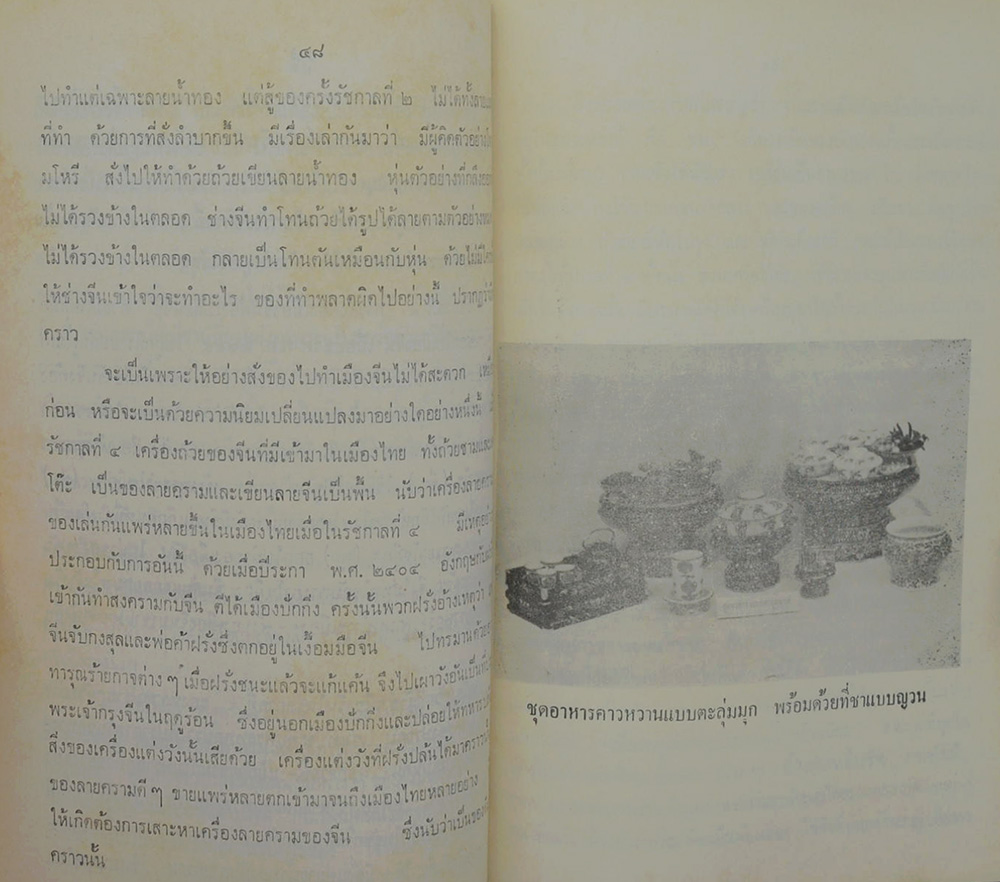 ๔๘
ไปทำแต่เฉพาะลายน้ำทอง แต่สู้ของครั้งรัชกาลที่ ๒ ไม่ได้ทั้ง
ที่ทำ ด้วยการที่สั่งลำบากขึ้น มีเรื่องเล่ากันมาว่า มีผู้คิดตัวอย่าง
มโหรี สั่งไปให้ทำด้วยถ้วยเขียนลายน้ำทอง หุ่นตัวอย่างที่กลึง
ไม่ได้รวงข้างในตลอด ช่างจีนทำโทนถ้วยได้รูปได้ลายตามตัวอย่าง
ไม่ได้รวงข้างในตลอด กลายเป็นโทนตันเหมือนกับหุ่น ด้วยไม่มี
ให้ช่างจีนเข้าใจว่าจะทำอะไร ของที่ทำพลาดผิดไปอย่างนี้
คราว
จะเป็นเพราะให้อย่างสั่งของไปทำเมืองจีนไม่ได้สะดวก
ก่อน หรือจะเป็นด้วยความนิยมเปลี่ยนแปลงมาอย่างใดอย่างหนึ่งนี้
รัชกาลที่ ๔ เครื่องถ้วยของจีนที่มีเข้ามาในเมืองไทย ทั้งถ้วยชาม
โต๊ะ เป็นของลายครามและเขียนลายจีนเป็นพื้น นับว่าเครื่องลาย
ของเล่นกันแพร่หลายขึ้นในเมืองไทยเมื่อในรัชกาลที่ ๔
ประกอบกับการอันนี้ ด้วยเมื่อปีระกา พ.ศ. ๒๔๐๔ อังกฤษ
เข้ากันทำสงครามกับจีน ตีได้เมืองปักกิ่ง ครั้งนั้นพวกฝรั่งอ้างเหตุว่า
จีนจับกงสุลและพ่อค้าฝรั่งซึ่งตกอยู่ในเงื้อมมือจีน ไปทรมาน
ทารุณร้ายกาจต่าง ๆ เมื่อฝรั่งชนะแล้วจะแก้แค้น จึงไปเผาวังอันเป็นที่
พระเจ้ากรุงจีนในฤดูร้อน ซึ่งอยู่นอกเมืองปักกิ่งและปล่อยให้ทหาร
สิ่งของเครื่องแต่งวังนั้นเสียด้วย เครื่องแต่งวังที่ฝรั่งปล้นได้มาคราวนั้น
ของลายครามดี ๆ ขายแพร่หลายตกเข้ามาจนถึงเมืองไทยหลายอย่าง
ให้เกิดต้องการเสาะหาเครื่องลายครามของจีน ซึ่งนับว่าเป็นของ
คราวนั้น
ชุดอาหารคาวหวานแบบตะลุ่มมุก พร้อมด้วยที่ชาแบบญวน